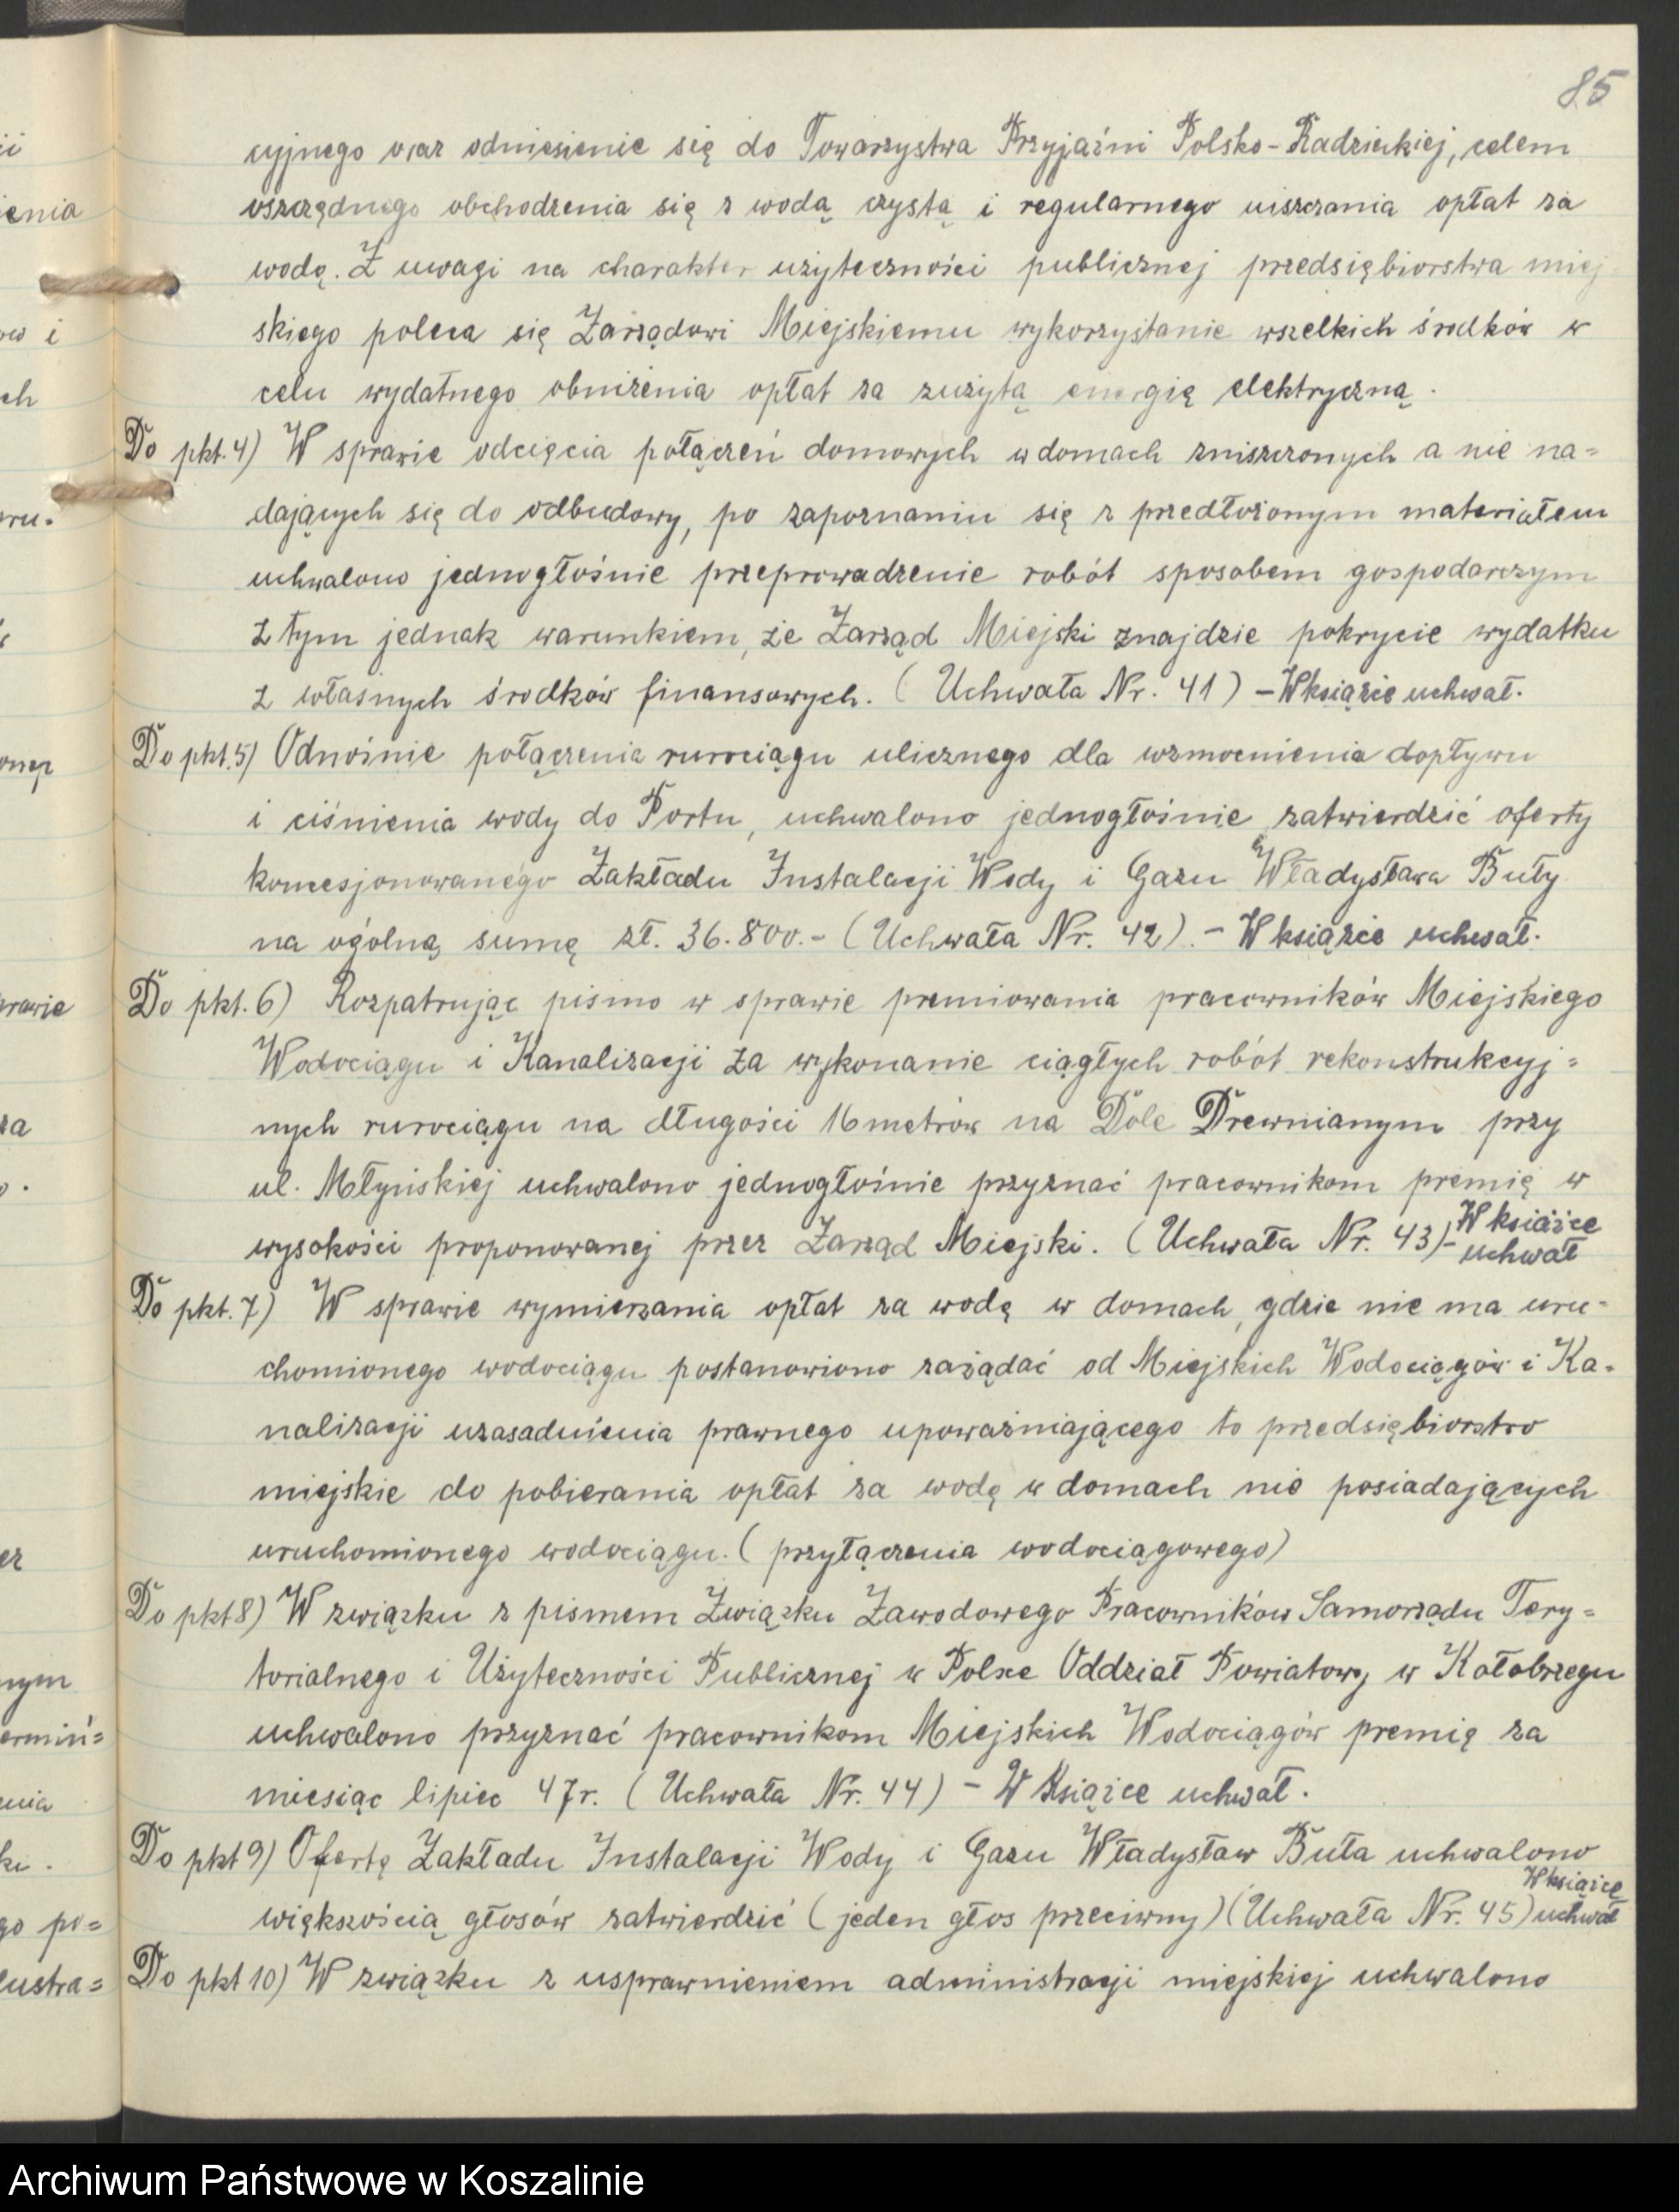 85
cyjnego oraz odniesienie się do Towarzystwa Przyjaźni Polsko-Radzieckiej, celem
oszczędnego obchodzenia się z wodą czystą i regularnego uiszczania opłat za
wodę. Z uwagi na charakter użyteczności publicznej przedsiębiorstwa miej
skiego poleca się Zarządowi Miejskiemu wykorzystanie wszelkich środków w
celu wydatnego obniżenia opłat za zużytą energię elektryczną.
Do pkt. 4) W sprawie odcięcia połączeń domowych w domach zniszczonych a nie na=
dających się do odbudowy, po zapoznaniu się z przedłożonym materiałem
uchwalono jednogłośnie przeprowadzenie robót sposobem gospodarczym
z tym jednak warunkiem, że Zarząd Miejski znajdzie pokrycie wydatku
z własnych środków finansowych. (Uchwała Nr. 41) - W książce uchwał.
Do pkt. 5) Odnośnie połączenia rurociągu ulicznego dla wzmocnienia dopływu
i ciśnienia wody do Portu, uchwalono jednogłośnie zatwierdzić oferty
koncesjonowanego Zakładu Instalacji Wody i Gazu Władysława Buły
na ogólną sumę zł. 36.800.- (Uchwała Nr. 42). - W książce uchwał.
Do pkt. 6) Rozpatrując pismo w sprawie premiowania pracowników Miejskiego
Wodociągu i Kanalizacji za wykonanie ciągłych robót rekonstrukcyj=
nych rurociągu na długości 16 metrów na Dole Drewnianym przy
ul. Młyńskiej uchwalono jednogłośnie przyznać pracownikom premię w
wysokości proponowanej przez Zarząd Miejski. (Uchwała Nr. 43) - W książce
uchwał
Do pkt. 7) W sprawie wymierzania opłat za wodę w domach, gdzie nie ma uru=
chomionego wodociągu postanowiono zażądać od Miejskich Wodociągów i Ka=
nalizacji uzasadnienia prawnego upoważniającego to przedsiębiorstwo
miejskie do pobierania opłat za wodę w domach nie posiadających
uruchomionego wodociągu. (przyłączenia wodociągowego)
Do pkt 8) W związku z pismem Związku Zawodowego Pracowników Samorządu Tery=
torialnego i Użyteczności Publicznej w Polsce Oddział Powiatowy w Kołobrzegu
uchwalono przyznać pracownikom Miejskich Wodociągów premię za
miesiąc lipiec 47 r. (Uchwała Nr. 44) - W Książce uchwał.
Do pkt 9) Ofertę Zakładu Instalacji Wody i Gazu Władysław Buła uchwalono
większością głosów zatwierdzić (jeden głos przeciwny) (Uchwała Nr. 45) W książce
uchwał
Do pkt 10) W związku z usprawnieniem administracji miejskiej uchwalono
Archiwum Państwowe w Koszalinie